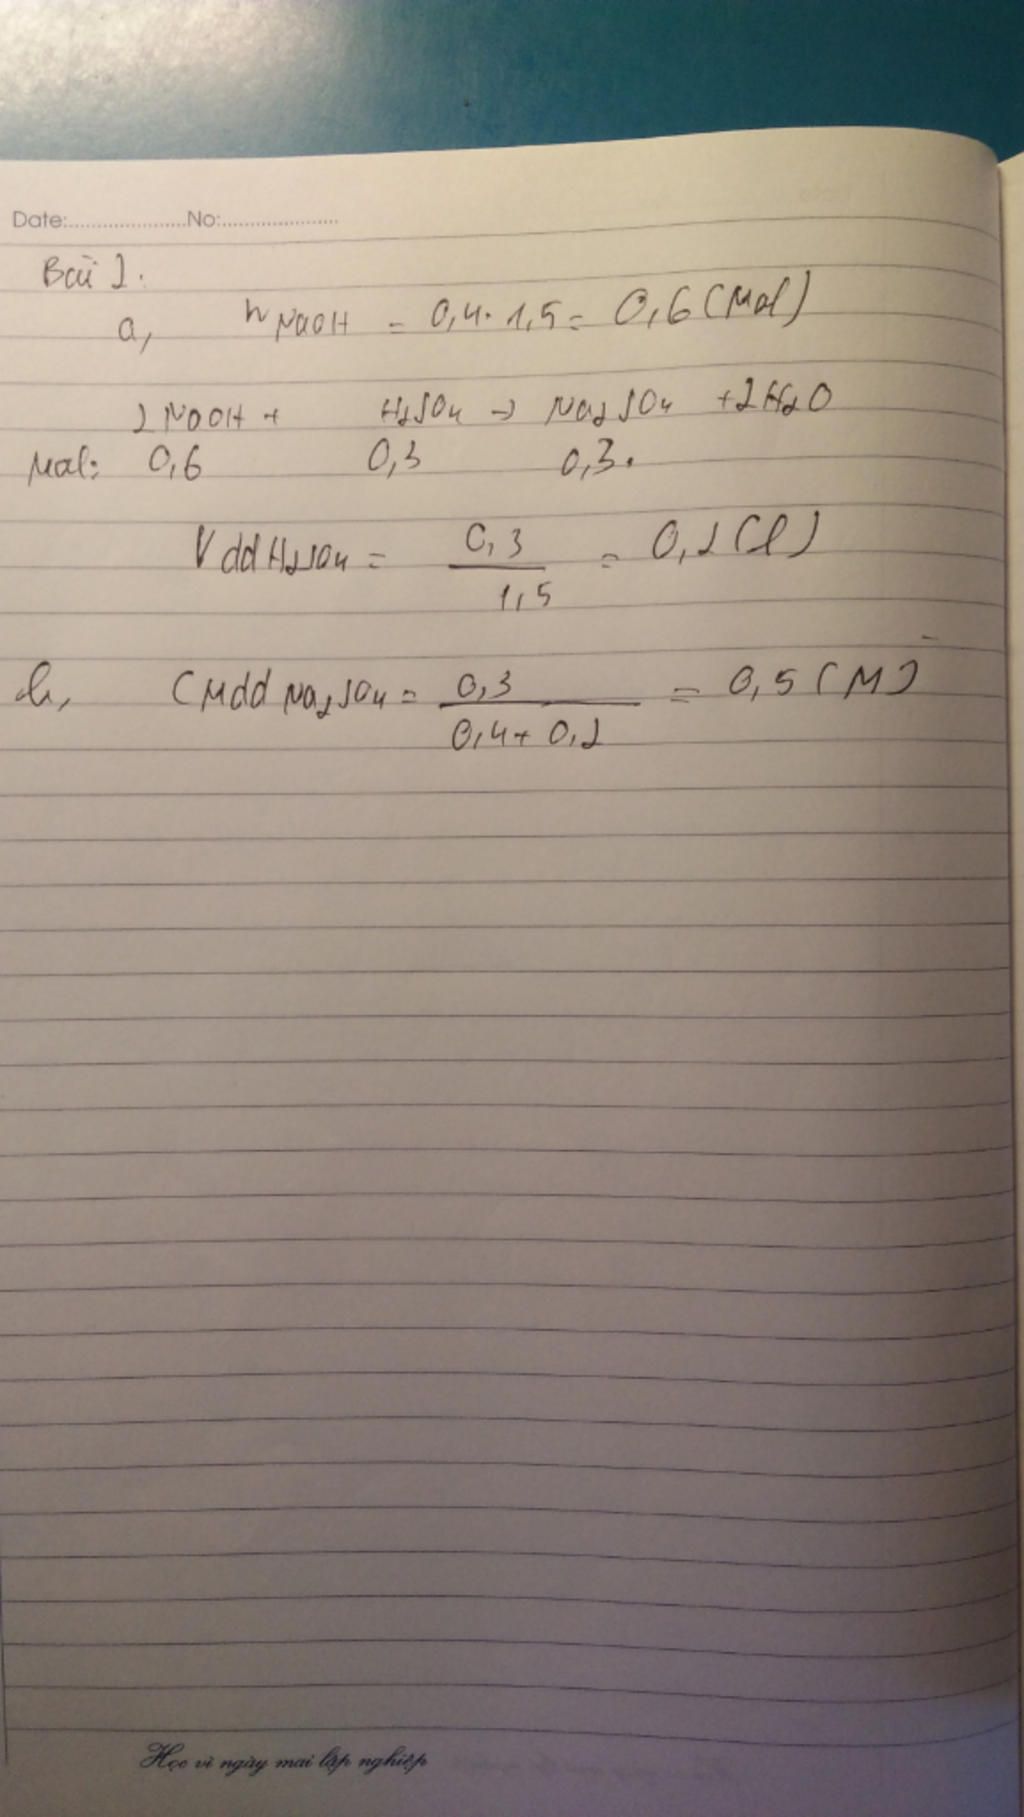 Date:.....................No:.....................
Bài 2.
a, nNaOH = 0,4. 1,5 = 0,6 (mol)
2NaOH + H2SO4 → Na2SO4 + 2H2O
Mol: 0,6 0,3 0,3.
VddH2SO4 = 0,3 / 1,5 = 0,2 (l)
b, CMdd Na2SO4 = 0,3 / 0,4 + 0,2 = 0,5 (M)
Học vì ngày mai lập nghiệp